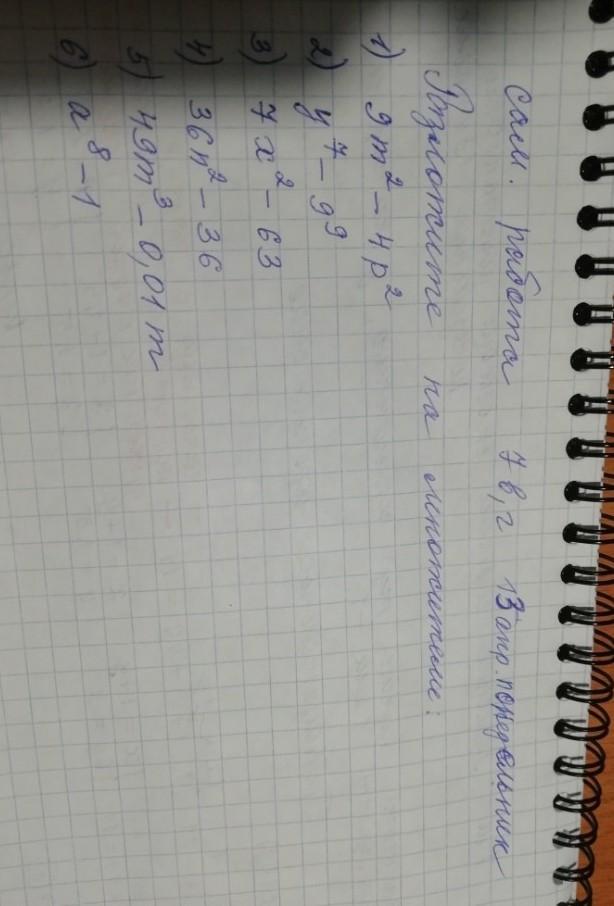 Сам. работа 7 в, г 13 апр. понедельник
Разложите на множители:
1) 9m² - 4p²
2) y⁷ - y⁹
3) 7x² - 63
4) 36n² - 36
5) 49m³ - 0,01m
6) a⁸ - 1